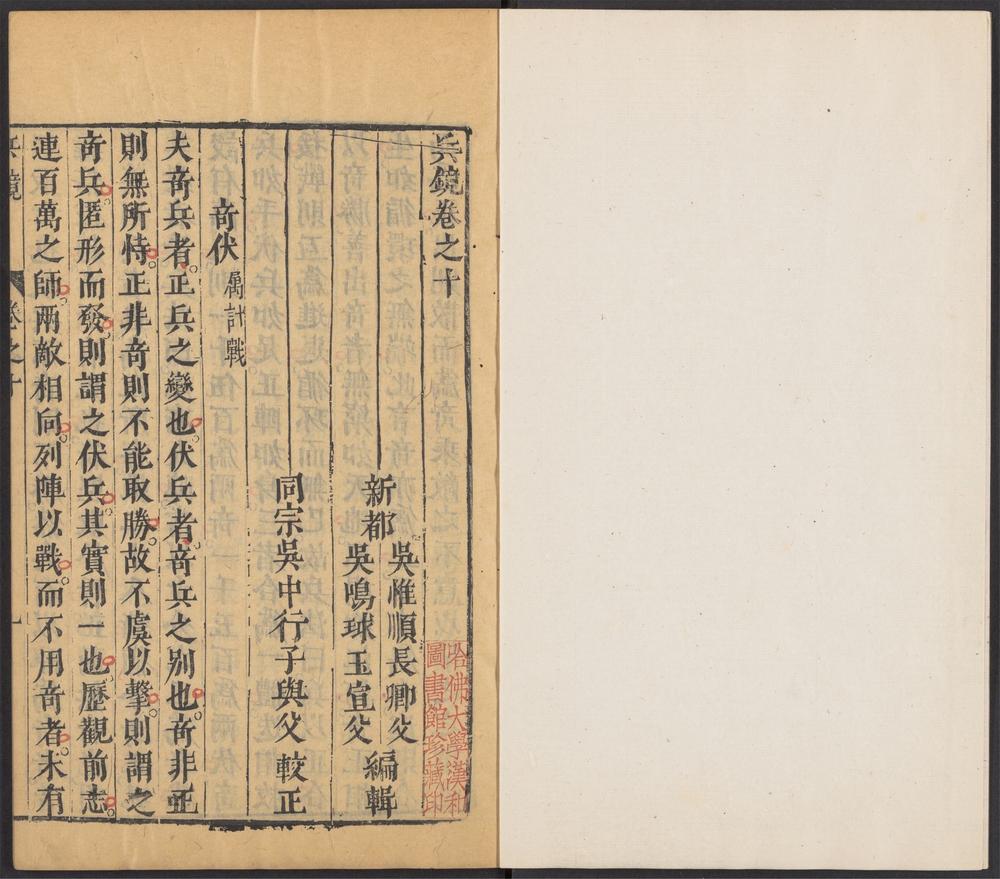 兵鏡卷之十
新都
吳惟順長卿父
吳鳴球玉宣父
編輯
同宗吳中行子與父 較正
竒伏 屬計戰
夫竒兵者正兵之變也伏兵者竒兵之別也竒非正
則無所恃正非竒則不能取勝故不虞以擊則謂之
竒兵匿形而發則謂之伏兵其實則一也歷觀前志
連百萬之師兩敵相向列陣以戰而不用竒者未有
兵鏡 卷之十 一
哈佛大學漢和
圖書館珍藏印